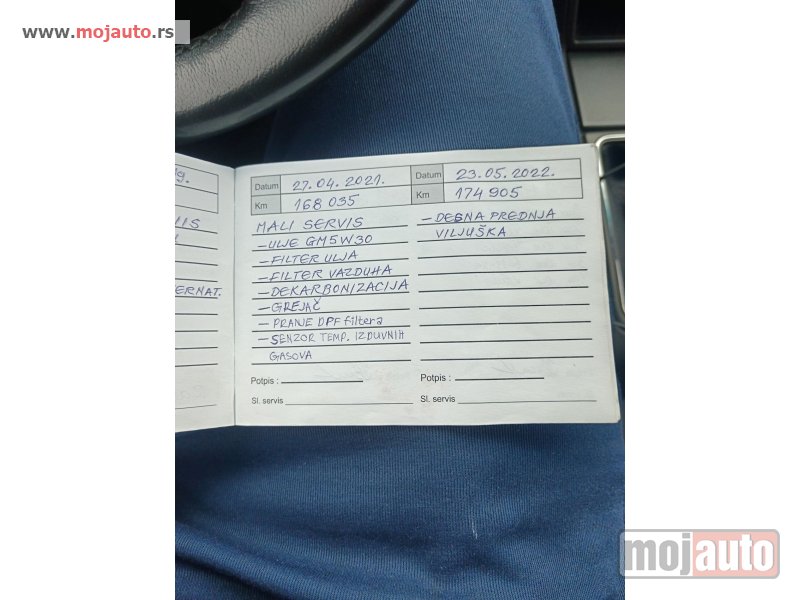 www.mojauto.rs
9.
IIS
ERNAT.
Datum 27.04.2021.
Km 168 035
MALI SERVIS
- ULJE GM5W30
- FILTER ULJA
- FILTER VAZDUHA
- DEKARBONIZACIJA
- GREJAČ
- PRANJE DPF filtera
- SENZOR TEMP. IZDUVNIH
GASOVA
Potpis :
Sl. servis
Datum 23.05.2022.
Km 174 905
- DESNA PREDNJA
VILJUŠKA
Potpis :
Sl. servis
mojauto